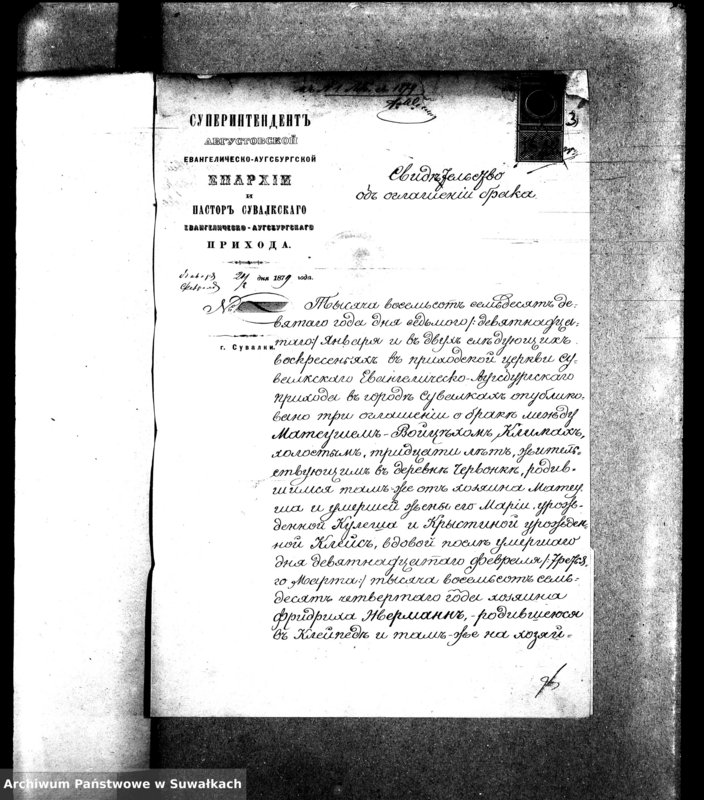 СУПЕРИНТЕНДЕНТЪ
АВГУСТОВСКОЙ
ЕВАНГЕЛИЧЕСКО-АУГСБУРГСКОЙ
ЕПАРХІИ
И
ПАСТОРЪ СУВАЛКСКАГО
ЕВАНГЕЛИЧЕСКО-АУГСБУРГСКАГО
ПРИХОДА.
дня 1879 года.
№
г. Сувалки.
Свидѣтельство
объ оглашеніи брака.
Тысяча восемьсотъ семьдесятъ де-
вятаго года дня седьмого /:девятнадца-
таго/ Января и въ двухъ слѣдующихъ
воскресеньяхъ въ приходской церкви Су-
валкскаго Евангелическо-Аугсбургскаго
прихода въ городѣ Сувалкахъ опублико-
вано три оглашеніи о бракѣ между
Матеушемъ-Войцѣхомъ Климахъ,
холостымъ, тридцати лѣтъ, житель-
ствующимъ въ деревнѣ Червонкѣ, родив-
шимся тамъ-же отъ хозяина Матеу-
ша и умершей жены его Маріи, урож-
денной Кулеша и Крыстиной урожден-
ной Клейсъ, вдовой послѣ умершаго
дня девятнадцатаго Февраля /:Треть-
го Марта:/ тысяча восемьсотъ семь-
десятъ четвертаго года хозяина
Фридриха Жерманнъ, - родившеюся
въ Клейпедѣ и тамъ-же на хозяй-
Archiwum Państwowe w Suwałkach